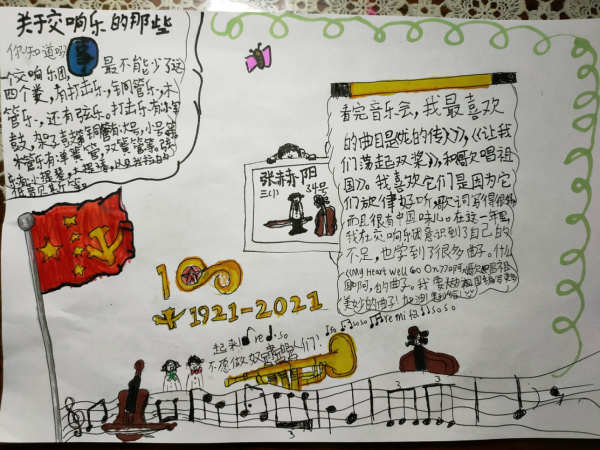 关于交响乐的那些
事
你知道吗
一个交响乐团, 最不能少了这
四个类,有打击乐,铜管乐,木
管乐,还有弦乐。打击乐有小军
鼓,架子鼓等铜管有大号,小号等
木管乐有单簧管,双簧管等。弦
看完音乐会,我最喜欢
的曲目是 的传》,《让我
们荡起双桨》,和《歌唱祖
国》。我喜欢它们是因为它
们旋律好听,歌词写得很好
而且很有中国味儿。在这一年里,
我在交响乐团意识到了自己的
不足,也学到了很多曲子。什么
《My Heart well Go On》啊,《歌唱祖
国》啊,的曲子。我
美妙的曲子!加油!
张赫阳
三(1) 34号
100
1921-2021
起来! re so
不愿做奴隶的人们!
so so so re mi fa so so
3
3 3